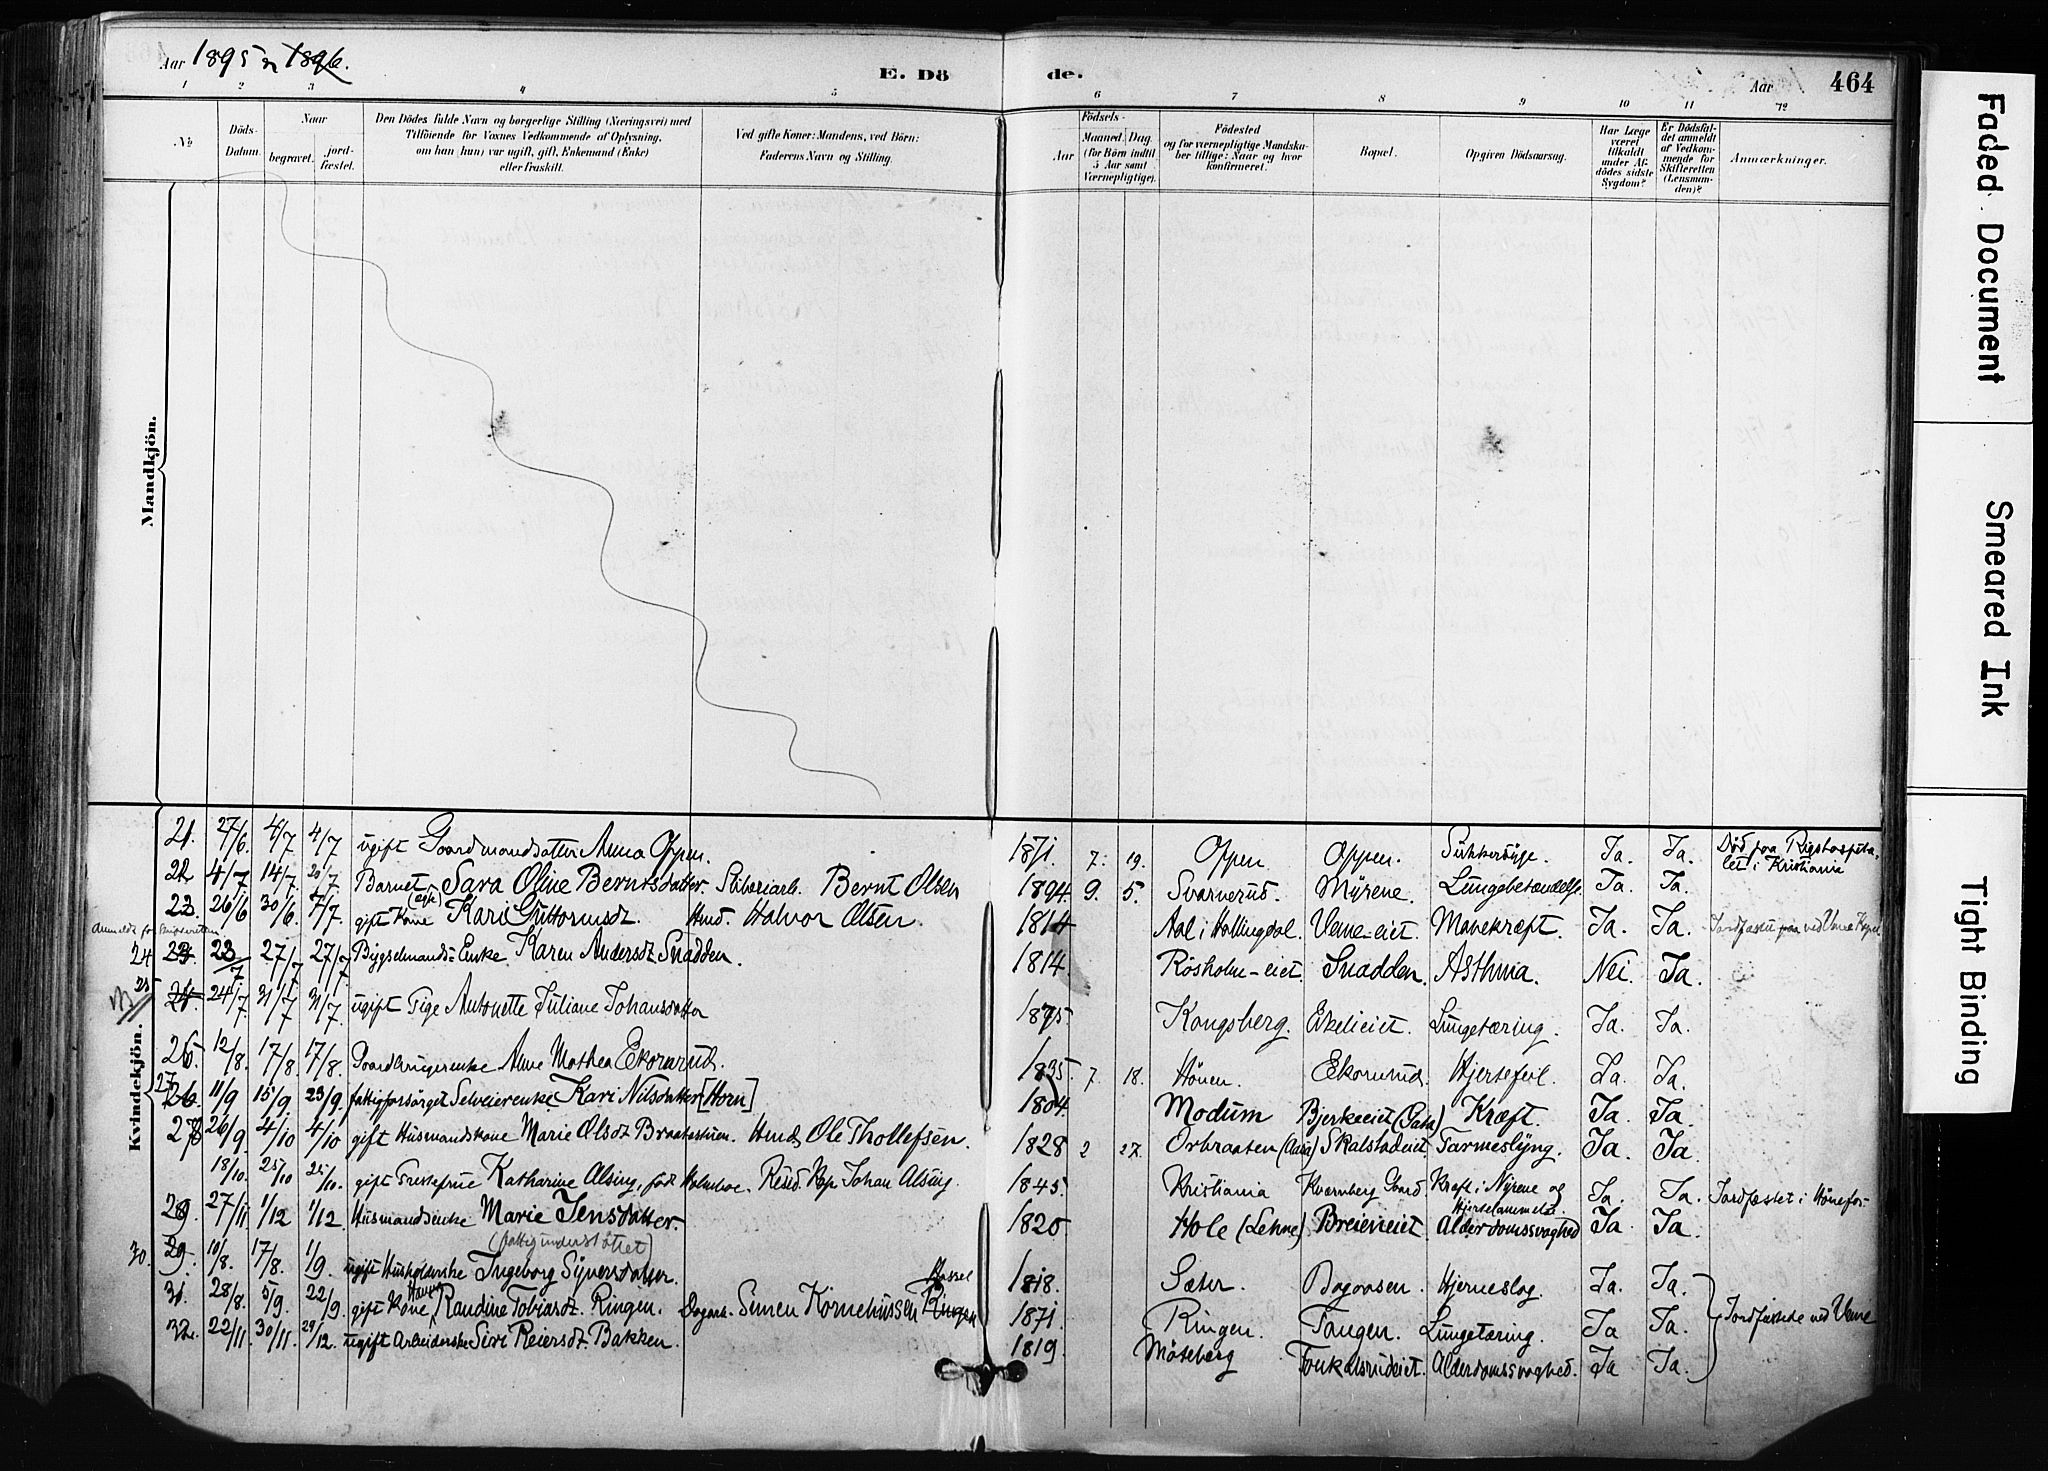 Aar 1895 1896.
E. Dö de.
Aar 464
1 2 3 4 5 6 7 8 9 10 11 12
№
Döds-Datum.
Naar
begravet. jord-fæstet.
Den Dödes fulde Navn og borgerlige Stilling (Næringsvei) med
Tilföiende for Voxnes Vedkommende af Oplysning,
om han (hun) var ugift, gift, Enkemand (Enke)
eller fraskilt.
Ved gifte Koner: Mandens, ved Börn:
Faderens Navn og Stilling.
Födsels-
Aar Maaned. Dag.
(for Börn indtil
5 Aar samt
Værnepligtige).
Födested
og for værnepligtige Mandska-
ber tillige: Naar og hvor
konfirmeret.
Bopæl.
Opgiven Dödsaarsag.
Har Læge
været
tilkaldt
under Af-
dödes sidste
Sygdom?
Er Dödsfal-
det anmeldt
af Vedkom-
mende for
Skifteretten
(Lensman-
den)?
Anmærkninger.
Mandkjön.
Kvindekjön.
21. 27/6. 4/7 4/7 ugift Gaardmandsdatter Anna Oppen. 1871. 7. 19. Oppen Oppen. Sukkersyge. Ja. Ja. Död paa Rigshospita-
let i Kristiania
22 4/7 14/7. 20/7. Barnet Sara Oline Berntsdatter. Sliberiarb. Bernt Olsen 1894. 9. 5. Svarverud. Myrene. Lungebetændelse. Ja. Ja.
23. 26/6 30/6. 7/7. gift Kone Kari Guttormsdt. Hmd. Halvor Olsen. 1814 Aal i Hallingdal. Veme-eiet. Mavekræft. Ja. Ja. Jordfæstet ved Veme Kapel
Anmeldt for Skifteretten
24 23. 23/7 27/7 27/7 Bygselmands-Enke Karen Andersdt Snadden. 1814. Rösholm-eiet. Snadden. Asthma. Nei Ja.
25 24. 24/7. 31/7 31/7 ugift Pige Antonette Juliane Johansdatter 1875. Kongsberg. Ekelieiet. Lungetæring. Ja. Ja.
26 12/8. 17/8. 17/8. Gaardbrugerenke Anne Mathea Ekornrud. 1835. 7. 18. Hönen. Ekornrud. Hjertefeil. Ja. Ja.
27 26. 11/9 15/9. 23/9. fattigforsörget Selveierenke Kari Nilsdatter [Horn] 1804. Modum Bjerkeeiet Kræft. Ja. Ja.
28 26/9. 4/10 4/10 gift Husmandskone Marie Olsdt Braatestuen. Hmd. Ole Thollefsen. 1828 2 27. Orbraaten Skalstadeiet. Tarmeslyng. Ja. Ja.
18/10. 25/10 25/10. gift Prestefrue Katharine Alsing, föd Holmboe. Resid. Kap Johan Alsing. 1845. Kristiania Kværnberg Gaard Kræft i Nyrene og
Hjertelammelse. Ja. Ja. Jordfæstet i Hönefos.
29. 27/11 1/12 1/12. Husmandsenke Marie Jensdatter. 1820 Hole (Lehne) Breieneiet Alderdomssvaghed Ja Ja
(fattigunderstöttet)
30. 29. 10/8. 17/8. 1/9. ugift Husholderske Ingeborg Syversdatter. 1818. Sæter. Dagaasen. Hjerneslag. Ja. Ja.
31. 28/8. 5/9. 22/9. gift Kone Randine Tobiasdt. Ringen. Dagarb. Simen Korneliussen Ringen Hassel 1871. Ringen. Tangen. Lungetæring. Ja Ja. Jordfæstede ved Veme
32. 22/11 30/11. 29/12. ugift Arbeiderske Siri Reiersdt Bakken. 1819. Möseberg Fonkalsrudeiet. Alderdomssvaghed. Ja Ja.
Faded Document
Smeared Ink
Tight Binding